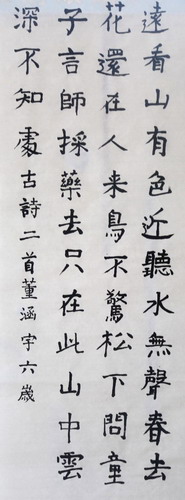 遠看山有色近聽水無聲春去
花還在人来鳥不驚松下問童
子言師採藥去只在此山中雲
深不知處古詩二首董涵宇六歲